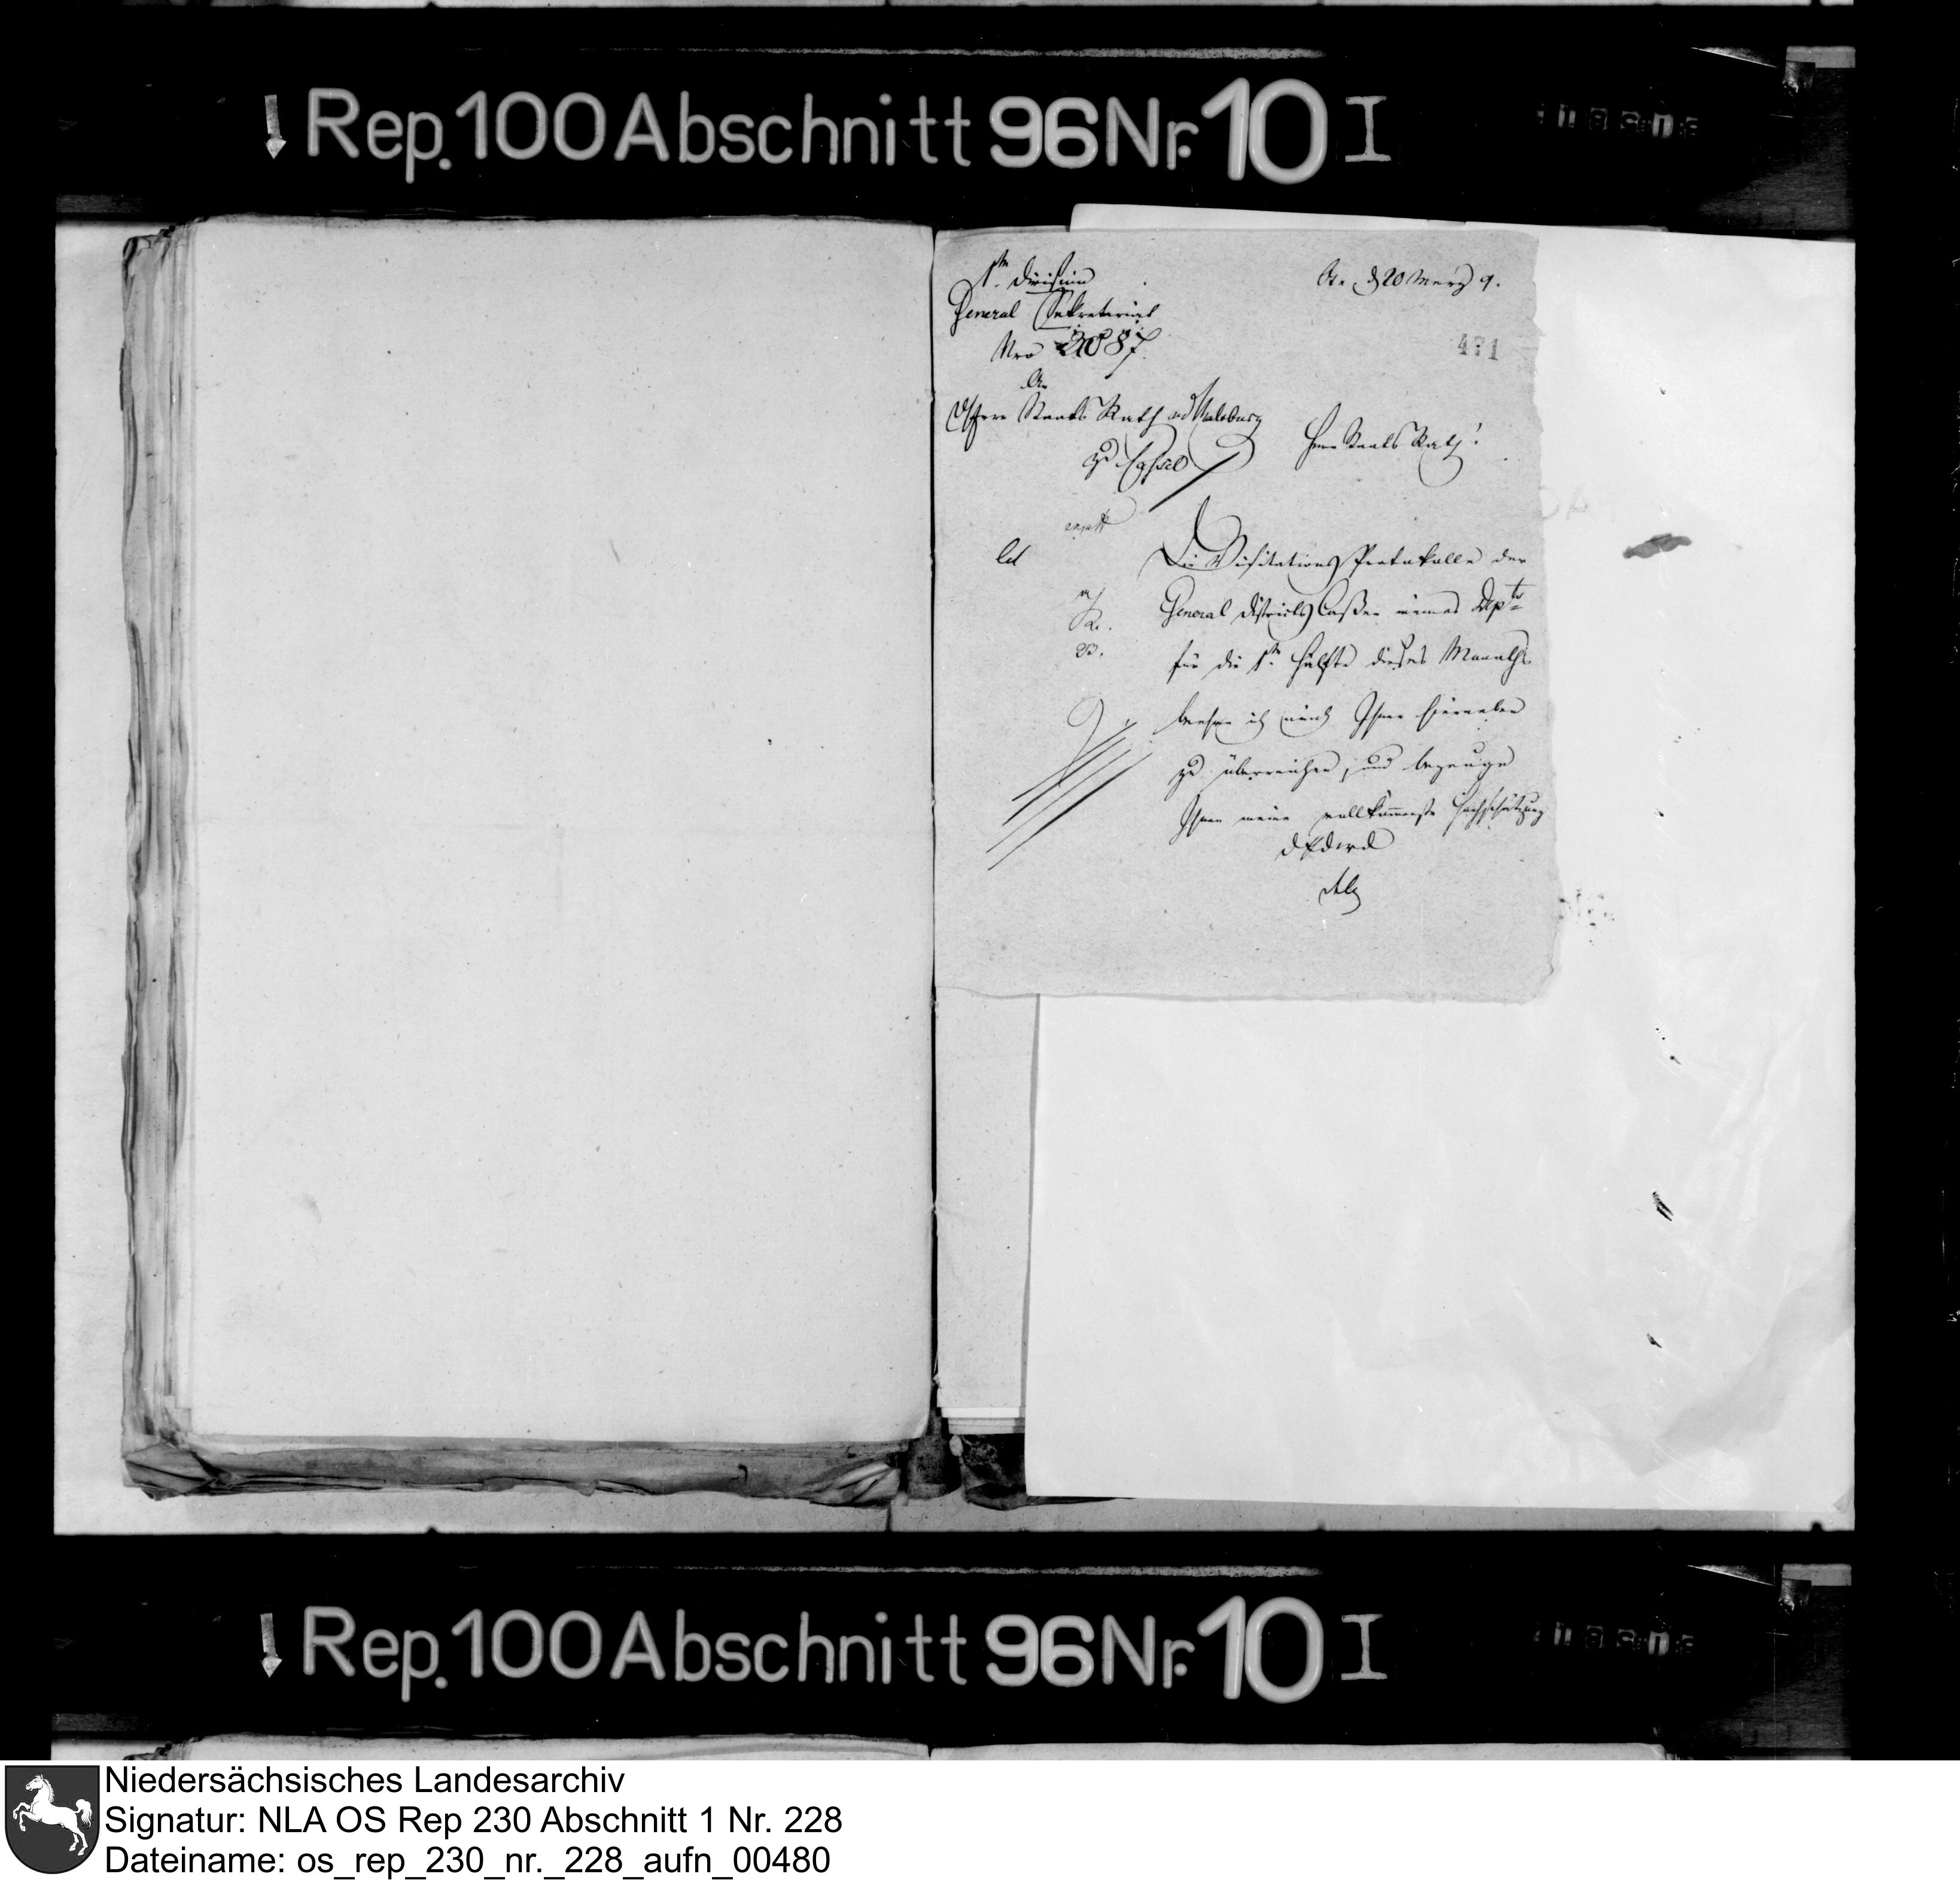 Rep. 100 Abschnitt 96 Nr. 10 I
1te Division
General Sekretariat
Nro 2087.
An
Herrn Staats Rath v. d. Malsburg
zu Cassel
Os. d 20 Merz 9.
471
Herr Staats Rath!
Die Visitations Protokolle der
General Districts Cassen meines Depts
für die 1te Hälfte dieses Monaths
beehre ich mich Ihnen hierneben
zu überreichen, und bezeuge
Ihnen meine vollkommenste Hochschätzung
Rep. 100 Abschnitt 96 Nr. 10 I
Niedersächsisches Landesarchiv
Signatur: NLA OS Rep 230 Abschnitt 1 Nr. 228
Dateiname: os_rep_230_nr._228_aufn_00480